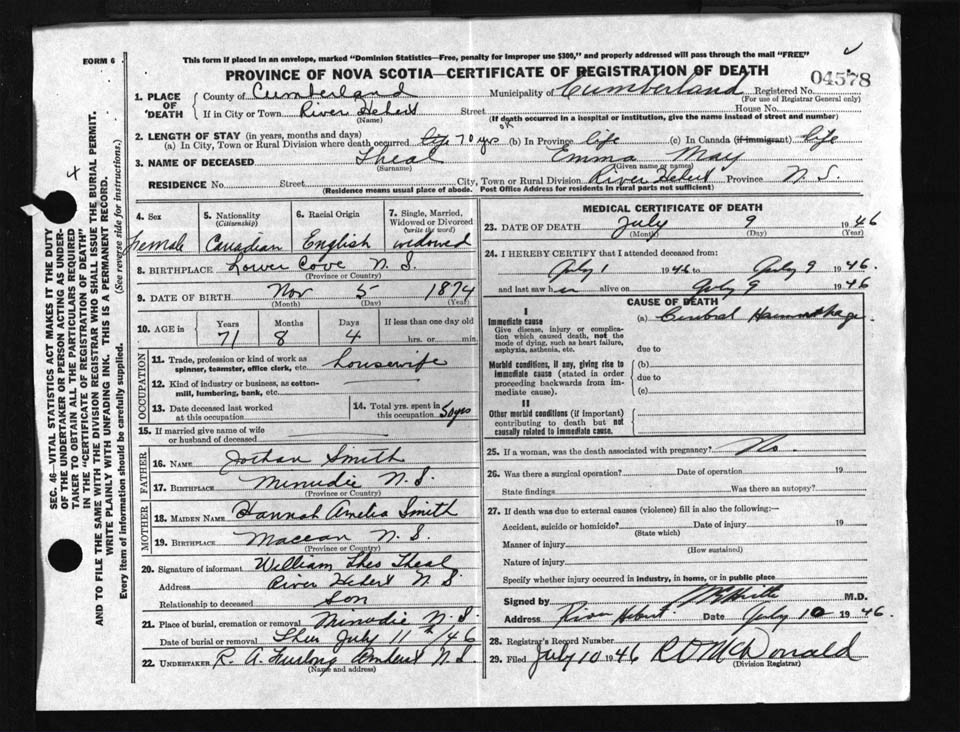 FORM 6
This form if placed in an envelope, marked "Dominion Statistics—Free, penalty for improper use $300," and properly addressed will pass through the mail "FREE"
PROVINCE OF NOVA SCOTIA—CERTIFICATE OF REGISTRATION OF DEATH
04578
1. PLACE OF DEATH
County of Cumberland Municipality of Cumberland Registered No.
(For use of Registrar General only)
If in City or Town River Hebert Street House No.
(Name) (If death occurred in a hospital or institution, give the name instead of street and number)
2. LENGTH OF STAY (in years, months and days)
(a) In City, Town or Rural Division where death occurred life 70 yrs (b) In Province life (c) In Canada (if immigrant) life
3. NAME OF DECEASED Theal Emma May
(Surname) (Given name or names)
RESIDENCE No. Street City, Town or Rural Division River Hebert Province N.S.
(Residence means usual place of abode. Post Office Address for residents in rural parts not sufficient)
4. Sex
Female
5. Nationality
(Citizenship)
Canadian
6. Racial Origin
English
7. Single, Married, Widowed or Divorced
(write the word)
widowed
8. BIRTHPLACE Lower Cove N.S.
(Province or Country)
9. DATE OF BIRTH Nov 5 1874
(Month) (Day) (Year)
10. AGE in
Years Months Days If less than one day old
71 8 4 hrs. or min.
OCCUPATION
11. Trade, profession or kind of work as spinner, teamster, office clerk, etc. housewife
12. Kind of industry or business, as cotton-mill, lumbering, bank, etc.
13. Date deceased last worked at this occupation
14. Total yrs. spent in this occupation 50 yrs
15. If married give name of wife or husband of deceased
FATHER
16. NAME Jothan Smith
17. BIRTHPLACE Minudie N.S.
(Province or Country)
MOTHER
18. MAIDEN NAME Hannah Amelia Smith
19. BIRTHPLACE Maccan N.S.
(Province or Country)
20. Signature of informant William Theal
Address River Hebert N S
Relationship to deceased Son
21. Place of burial, cremation or removal Minudie N.S.
Date of burial or removal Thur July 11th/46
22. UNDERTAKER R. A. Furlong Amherst N.S.
(Name and address)
MEDICAL CERTIFICATE OF DEATH
23. DATE OF DEATH July 9 1946
(Month) (Day) (Year)
24. I HEREBY CERTIFY that I attended deceased from:
July 1 1946 to July 9 1946.
and last saw her alive on July 9 1946
CAUSE OF DEATH
I
Immediate cause
Give disease, injury or complication which caused death, not the mode of dying, such as heart failure, asphyxia, asthenia, etc.
(a) Cerebral Haemorrhage
due to
Morbid conditions, if any, giving rise to immediate cause (stated in order proceeding backwards from immediate cause).
(b)
due to
(c)
II
Other morbid conditions (if important) contributing to death but not causally related to immediate cause.
25. If a woman, was the death associated with pregnancy? No.
26. Was there a surgical operation? Date of operation 19
State findings Was there an autopsy?
27. If death was due to external causes (violence) fill in also the following:—
Accident, suicide or homicide? Date of injury 19
(State which)
Manner of injury
(How sustained)
Nature of injury
Specify whether injury occurred in industry, in home, or in public place
Signed by M.D.
Address River Hebert Date July 10 1946
28. Registrar's Record Number
29. Filed July 10 1946 R O McDonald
(Division Registrar)
SEC. 46—VITAL STATISTICS ACT MAKES IT THE DUTY
OF THE UNDERTAKER OR PERSON ACTING AS UNDER-
TAKER TO OBTAIN ALL THE PARTICULARS REQUIRED
IN THE "CERTIFICATE OF REGISTRATION OF DEATH"
AND TO FILE THE SAME WITH THE DIVISION REGISTRAR WHO SHALL ISSUE THE BURIAL PERMIT.
WRITE PLAINLY WITH UNFADING INK. THIS IS A PERMANENT RECORD.
Every item of information should be carefully supplied. (See reverse side for instructions.)